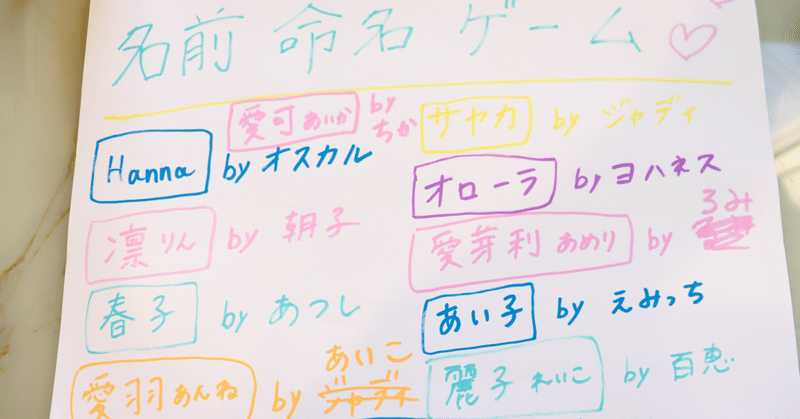 名前 命名 ゲーム
愛可 あいか by ちか
サヤカ by ジャディ
Hanna by オスカル
オローラ by ヨハネス
凛 りん by 朝子
愛芽利 あめり by ろみ
春子 by あつし
あい子 by えみっち
愛羽 あんね by あいこ
麗子 れいこ by 百恵